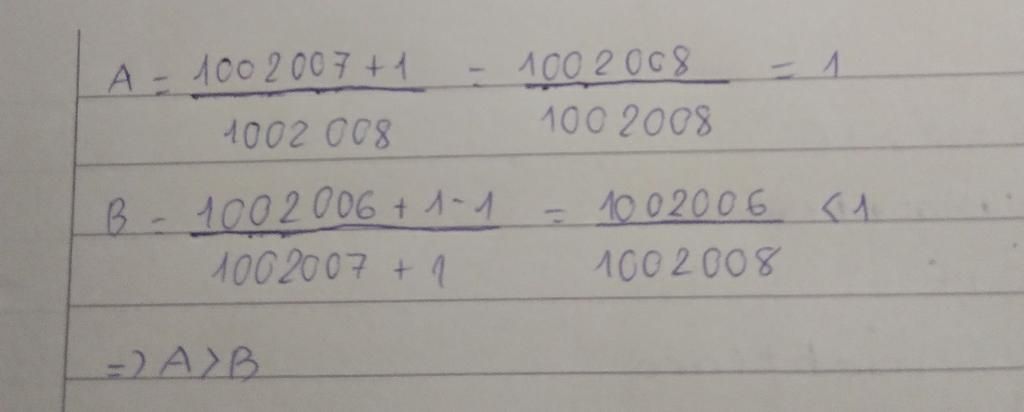 A = 1002007 + 1 / 1002 008 = 1002008 / 1002008 = 1
B = 1002006 + 1 - 1 / 1002007 + 1 = 1002006 / 1002008 < 1
=> A > B